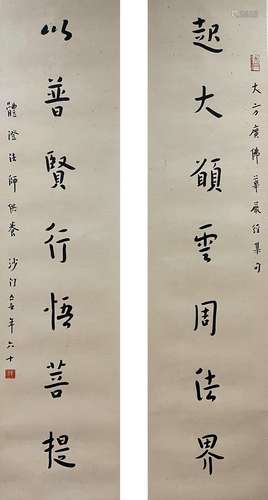 大方廣佛華嚴經集句
起大願雲周法界
以普賢行悟菩提
體澄法師供養 沙門 年六十